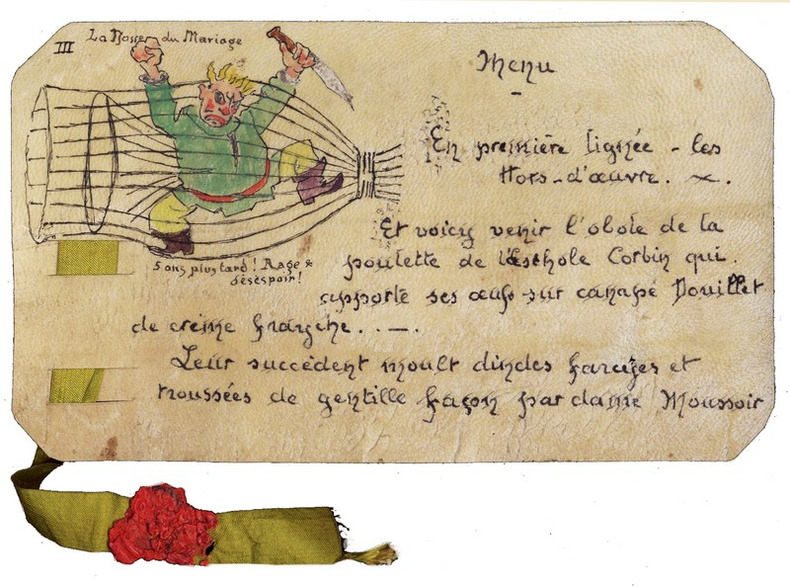 III La Nasse du Mariage
5 ans plus tard ! Rage &
désespoir !
Menu
-
En première lignée - les
Hors-d'œuvre. ~.
Et voicy venir l'obole de la
poulette de l'Eschole Corbin qui.
apporte ses œufs sur canapé Douillet
de crème . . —.
Leur succèdent moult dindes farcyes et
troussées de gentille façon par dame Moussoir